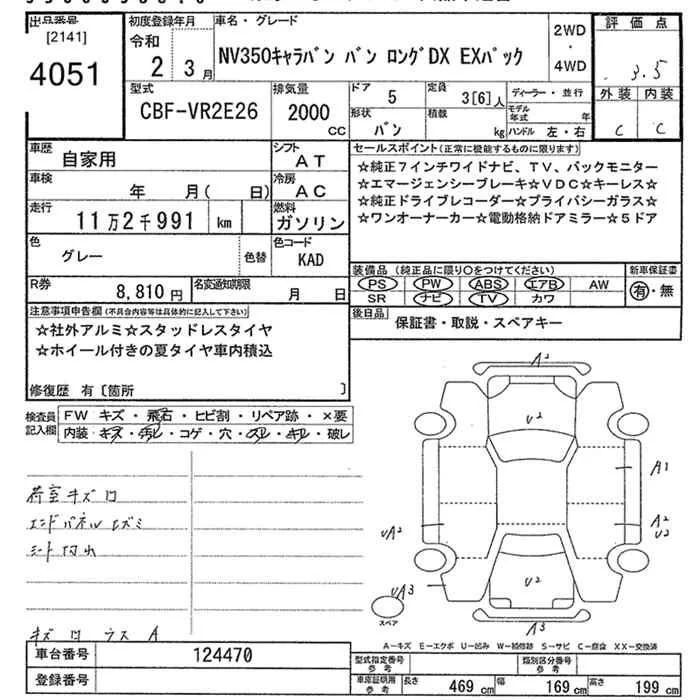 出品番号
[2141]
4051
初度登録年月
令和
2 3月
車名・グレード
NV350キャラバン バン ロングDX EXパック
2WD
・
4WD
評価点
3.5
外装 内装
C C
型式
CBF-VR2E26
排気量
2000
CC
ドア
5
定員
3[6]人
形状
バン
積載
kg
ディーラー・並行
モデル年式 年
ハンドル 左・右
車歴
自家用
シフト
AT
車検
年 月( 日)
冷房
AC
走行
11万2千991 km
燃料
ガソリン
色
グレー
色替
色コード
KAD
R券
8,810円
名変通知期限
月 日
セールスポイント(正常に機能するものに限ります)
☆純正7インチワイドナビ、TV、バックモニター
☆エマージェンシーブレーキ☆VDC☆キーレス☆
☆純正ドライブレコーダー☆プライバシーガラス☆
☆ワンオーナーカー☆電動格納ドアミラー☆5ドア
装備品(純正品に限り○をつけてください)
PS PW ABS エアB AW
SR ナビ TV カワ
新車保証書
有・無
後日品
保証書・取説・スペアキー
注意事項申告欄(不具合内容等は具体的に記入して下さい)
☆社外アルミ☆スタッドレスタイヤ
☆ホイール付きの夏タイヤ車内積込
修復歴 有〔箇所 〕
検査員記入欄
FW キズ・飛石・ヒビ割・リペア跡・×要
内装・キズ・汚レ・コゲ・穴・スレ・キレ・破レ
荷室キズ凹
エンドパネルヒズミ
シート汚れ
キズ凹 ラス A
A2
U2
A1
A2
U2
UA2
U2
UA3
A3
スペア
A−キズ E−エクボ U−凹み W−補修跡 S−サビ C−腐食 XX−交換済
車台番号
124470
登録番号
型式指定番号
参考
類別区分番号
参考
車庫証明用
参考
長さ 469 cm 幅 169 cm 高さ 199 cm